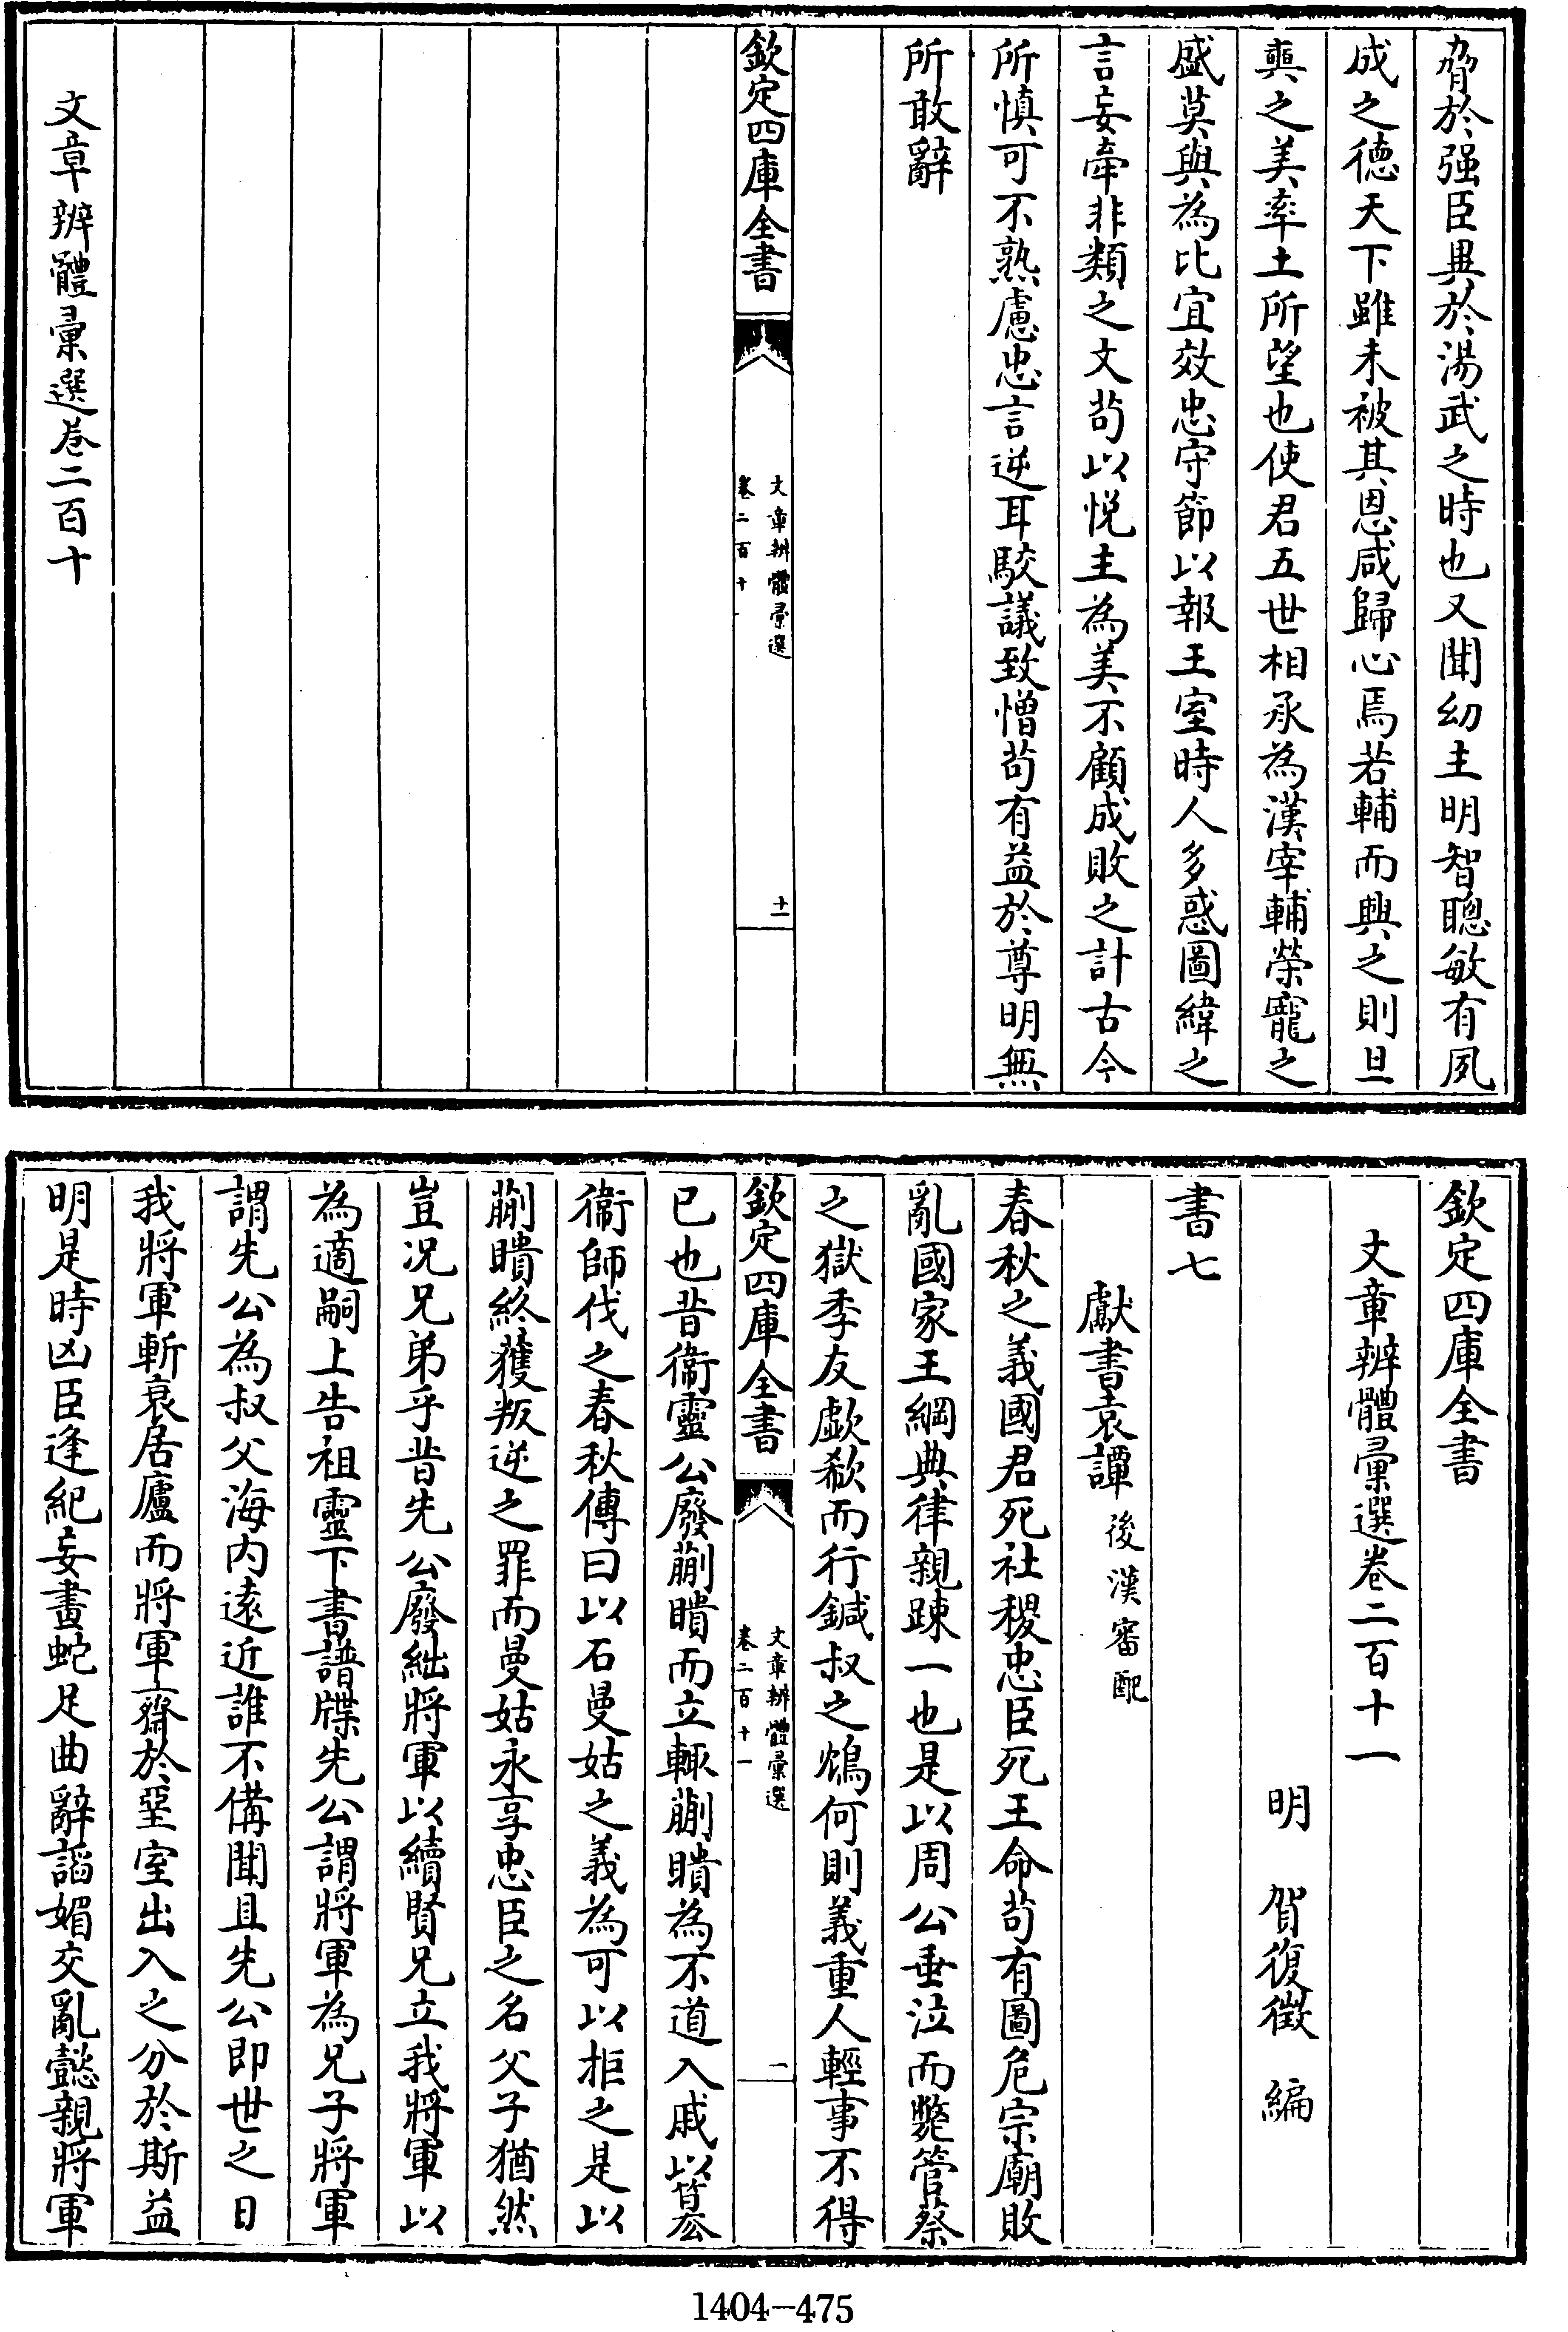 脅於强臣異於湯武之時也又聞幼主明智聰敏有夙
成之德天下雖未被其恩咸歸心焉若輔而興之則旦
奭之美率土所望也使君五世相承為漢宰輔榮寵之
盛莫與為比宜效忠守節以報王室時人多惑圖緯之
言妄牽非類之文苟以悦主為美不顧成敗之計古今
所慎可不熟慮忠言逆耳駮議致憎苟有益於尊明無
所敢辭
欽定四庫全書
文章辨體彙選
卷二百十
十一
文章辨體彙選卷二百十
欽定四庫全書
文章辨體彙選卷二百十一
明 賀復徵 編
書七
獻書袁譚 後漢審配
春秋之義國君死社稷忠臣死王命苟有圖危宗廟敗
亂國家王綱典律親踈一也是以周公垂泣而斃管蔡
之獄季友歔欷而行鍼叔之鴆何則義重人輕事不得
已也昔衞靈公廢蒯聵而立輒蒯聵為不道入戚以簒
衞師伐之春秋傳曰以石曼姑之義為可以拒之是以
蒯聵終獲叛逆之罪而曼姑永享忠臣之名父子猶然
豈况兄弟乎昔先公廢絀將軍以續賢兄立我將軍以
為適嗣上告祖靈下書譜牒先公謂將軍為兄子將軍
謂先公為叔父海内遠近誰不備聞且先公即世之日
我將軍斬衰居廬而將軍齋於堊室出入之分於斯益
明是時凶臣逢紀妄畫蛇足曲辭諂媚交亂懿親將軍
欽定四庫全書
文章辨體彙選
卷二百十一
一
1404-475